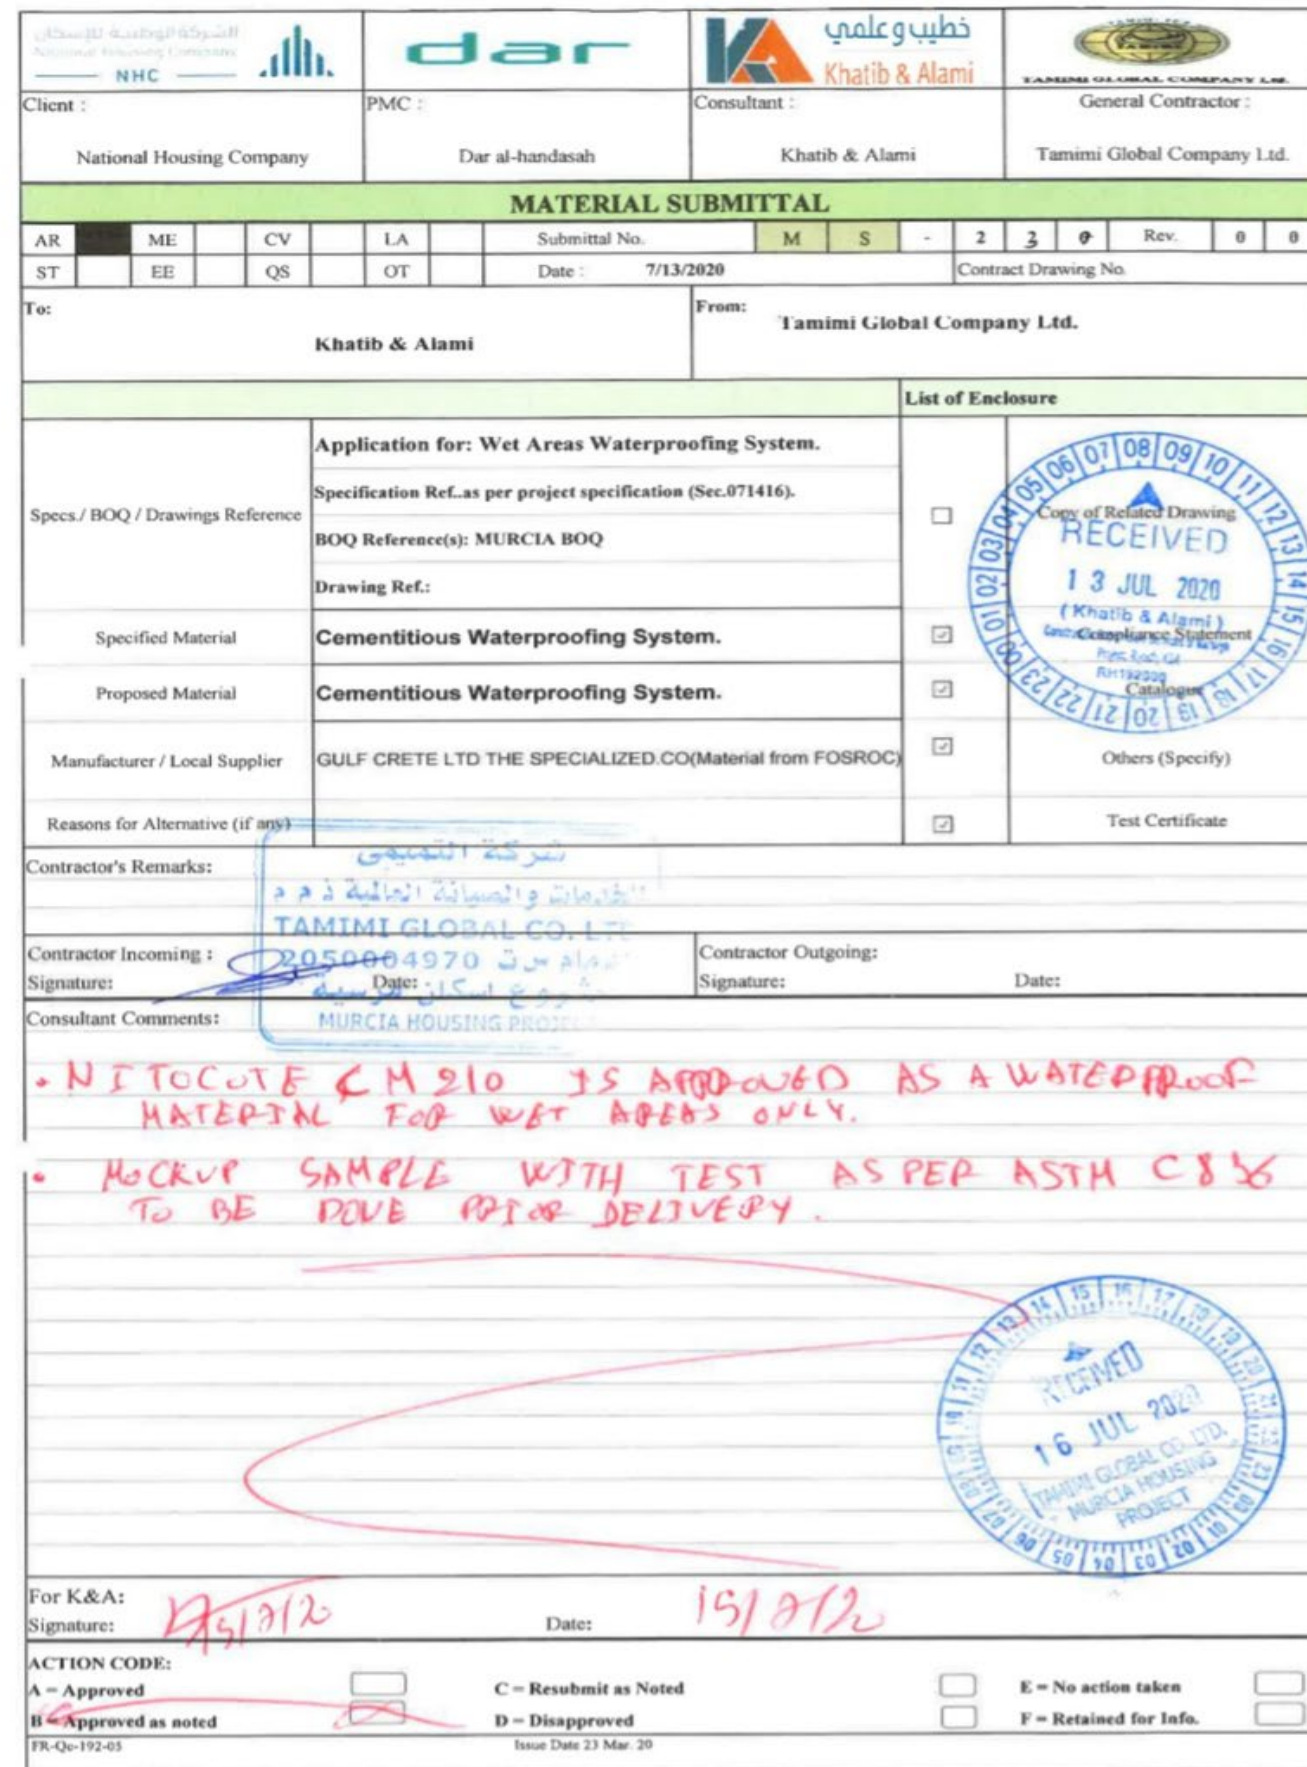 الشركة الوطنية للإسكان
National Housing Company
NHC
dar
خطيب وعلمي
Khatib & Alami
TAMIMI
TAMIMI GLOBAL COMPANY Ltd.
Client :
PMC :
Consultant :
General Contractor :
National Housing Company
Dar al-handasah
Khatib & Alami
Tamimi Global Company Ltd.
MATERIAL SUBMITTAL
AR ME CV LA Submittal No. M S - 2 3 0 Rev. 0 0
ST EE QS OT Date : 7/13/2020 Contract Drawing No.
To:
Khatib & Alami
From:
Tamimi Global Company Ltd.
List of Enclosure
Specs./ BOQ / Drawings Reference
Application for: Wet Areas Waterproofing System.
Specification Ref..as per project specification (Sec.071416).
BOQ Reference(s): MURCIA BOQ
Drawing Ref.:
Copy of Related Drawing
Specified Material
Cementitious Waterproofing System.
Compliance Statement
Proposed Material
Cementitious Waterproofing System.
Catalogue
Manufacturer / Local Supplier
GULF CRETE LTD THE SPECIALIZED.CO(Material from FOSROC)
Others (Specify)
Reasons for Alternative (if any)
Test Certificate
00 01 02 03 04 05 06 07 08 09 10 11 12 13 14 15 16 17 18 19 20 21 22 23
RECEIVED
13 JUL 2020
( Khatib & Alami )
Contractor's Remarks:
شركة التميمي
للخدمات والصيانة العالمية ذ م م
TAMIMI GLOBAL CO. LTD
2050004970
مشروع اسكان مرسية
MURCIA HOUSING PROJECT
Contractor Incoming :
Signature:
Date:
Contractor Outgoing:
Signature:
Date:
Consultant Comments:
• NITOCOTE CM 210 IS APPROVED AS A WATERPROOF
MATERIAL FOR WET AREAS ONLY.
• MOCKUP SAMPLE WITH TEST AS PER ASTM C836
TO BE DONE PRIOR DELIVERY.
RECEIVED
16 JUL 2020
TAMIMI GLOBAL CO. LTD.
MURCIA HOUSING
PROJECT
For K&A:
Signature: 15/7/20
Date: 15/7/20
ACTION CODE:
A = Approved
C = Resubmit as Noted
E = No action taken
B = Approved as noted
D = Disapproved
F = Retained for Info.
FR-Qc-192-05
Issue Date 23 Mar. 20